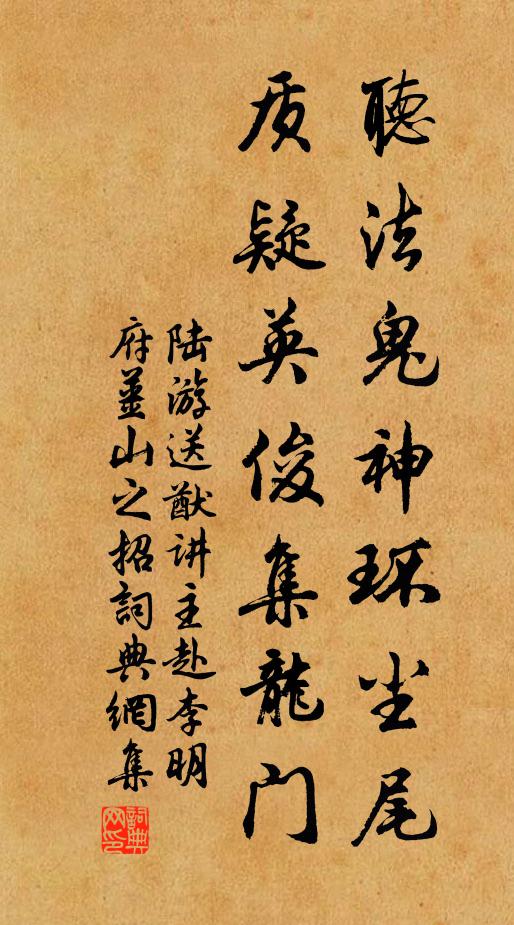 聽法鬼神环尘尾
质疑英俊集龍门
陆游送猷讲主赴李明
府薑山之招詞典網集
詞典网印